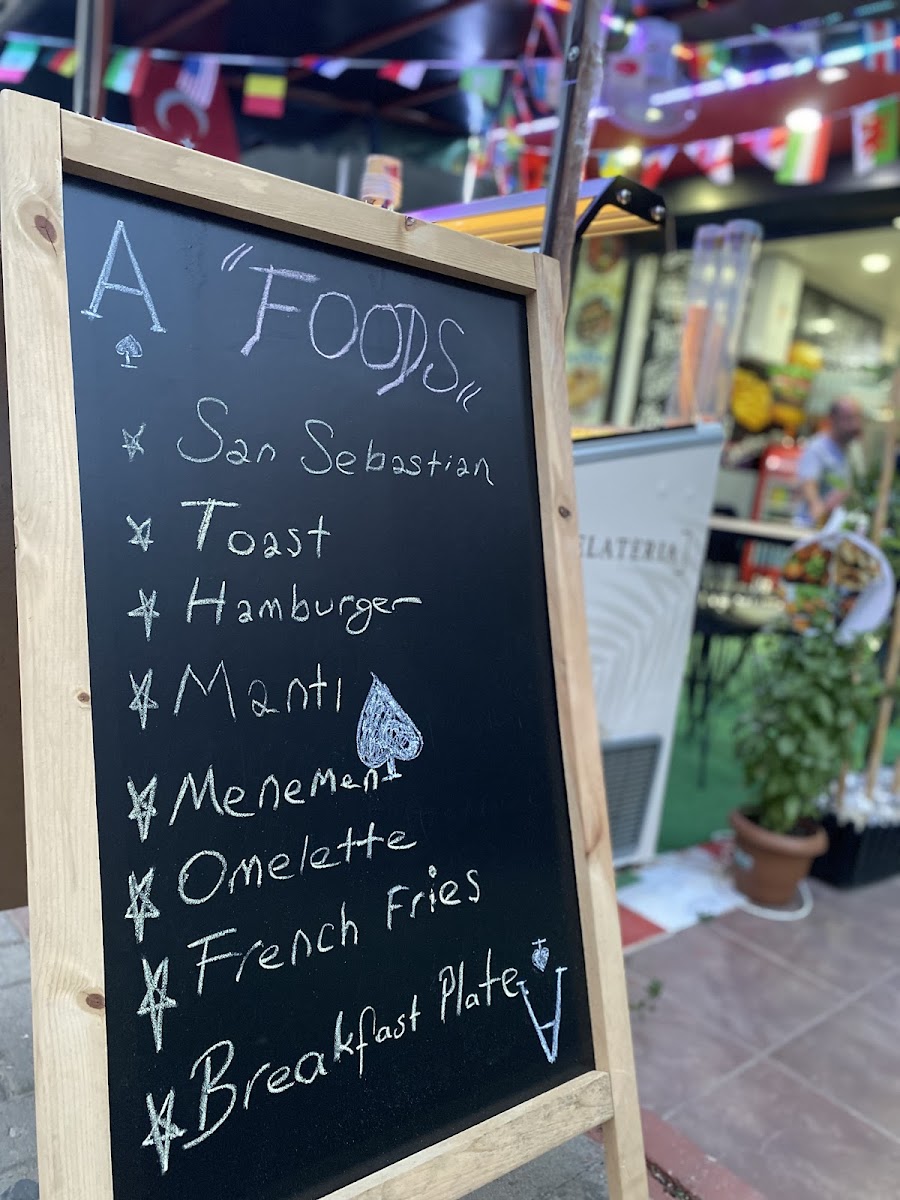 A
"FOODS"
San Sebastian
Toast
Hamburger
Mantı
Menemen
Omelette
French Fries
Breakfast Plate
A
ELATERIA